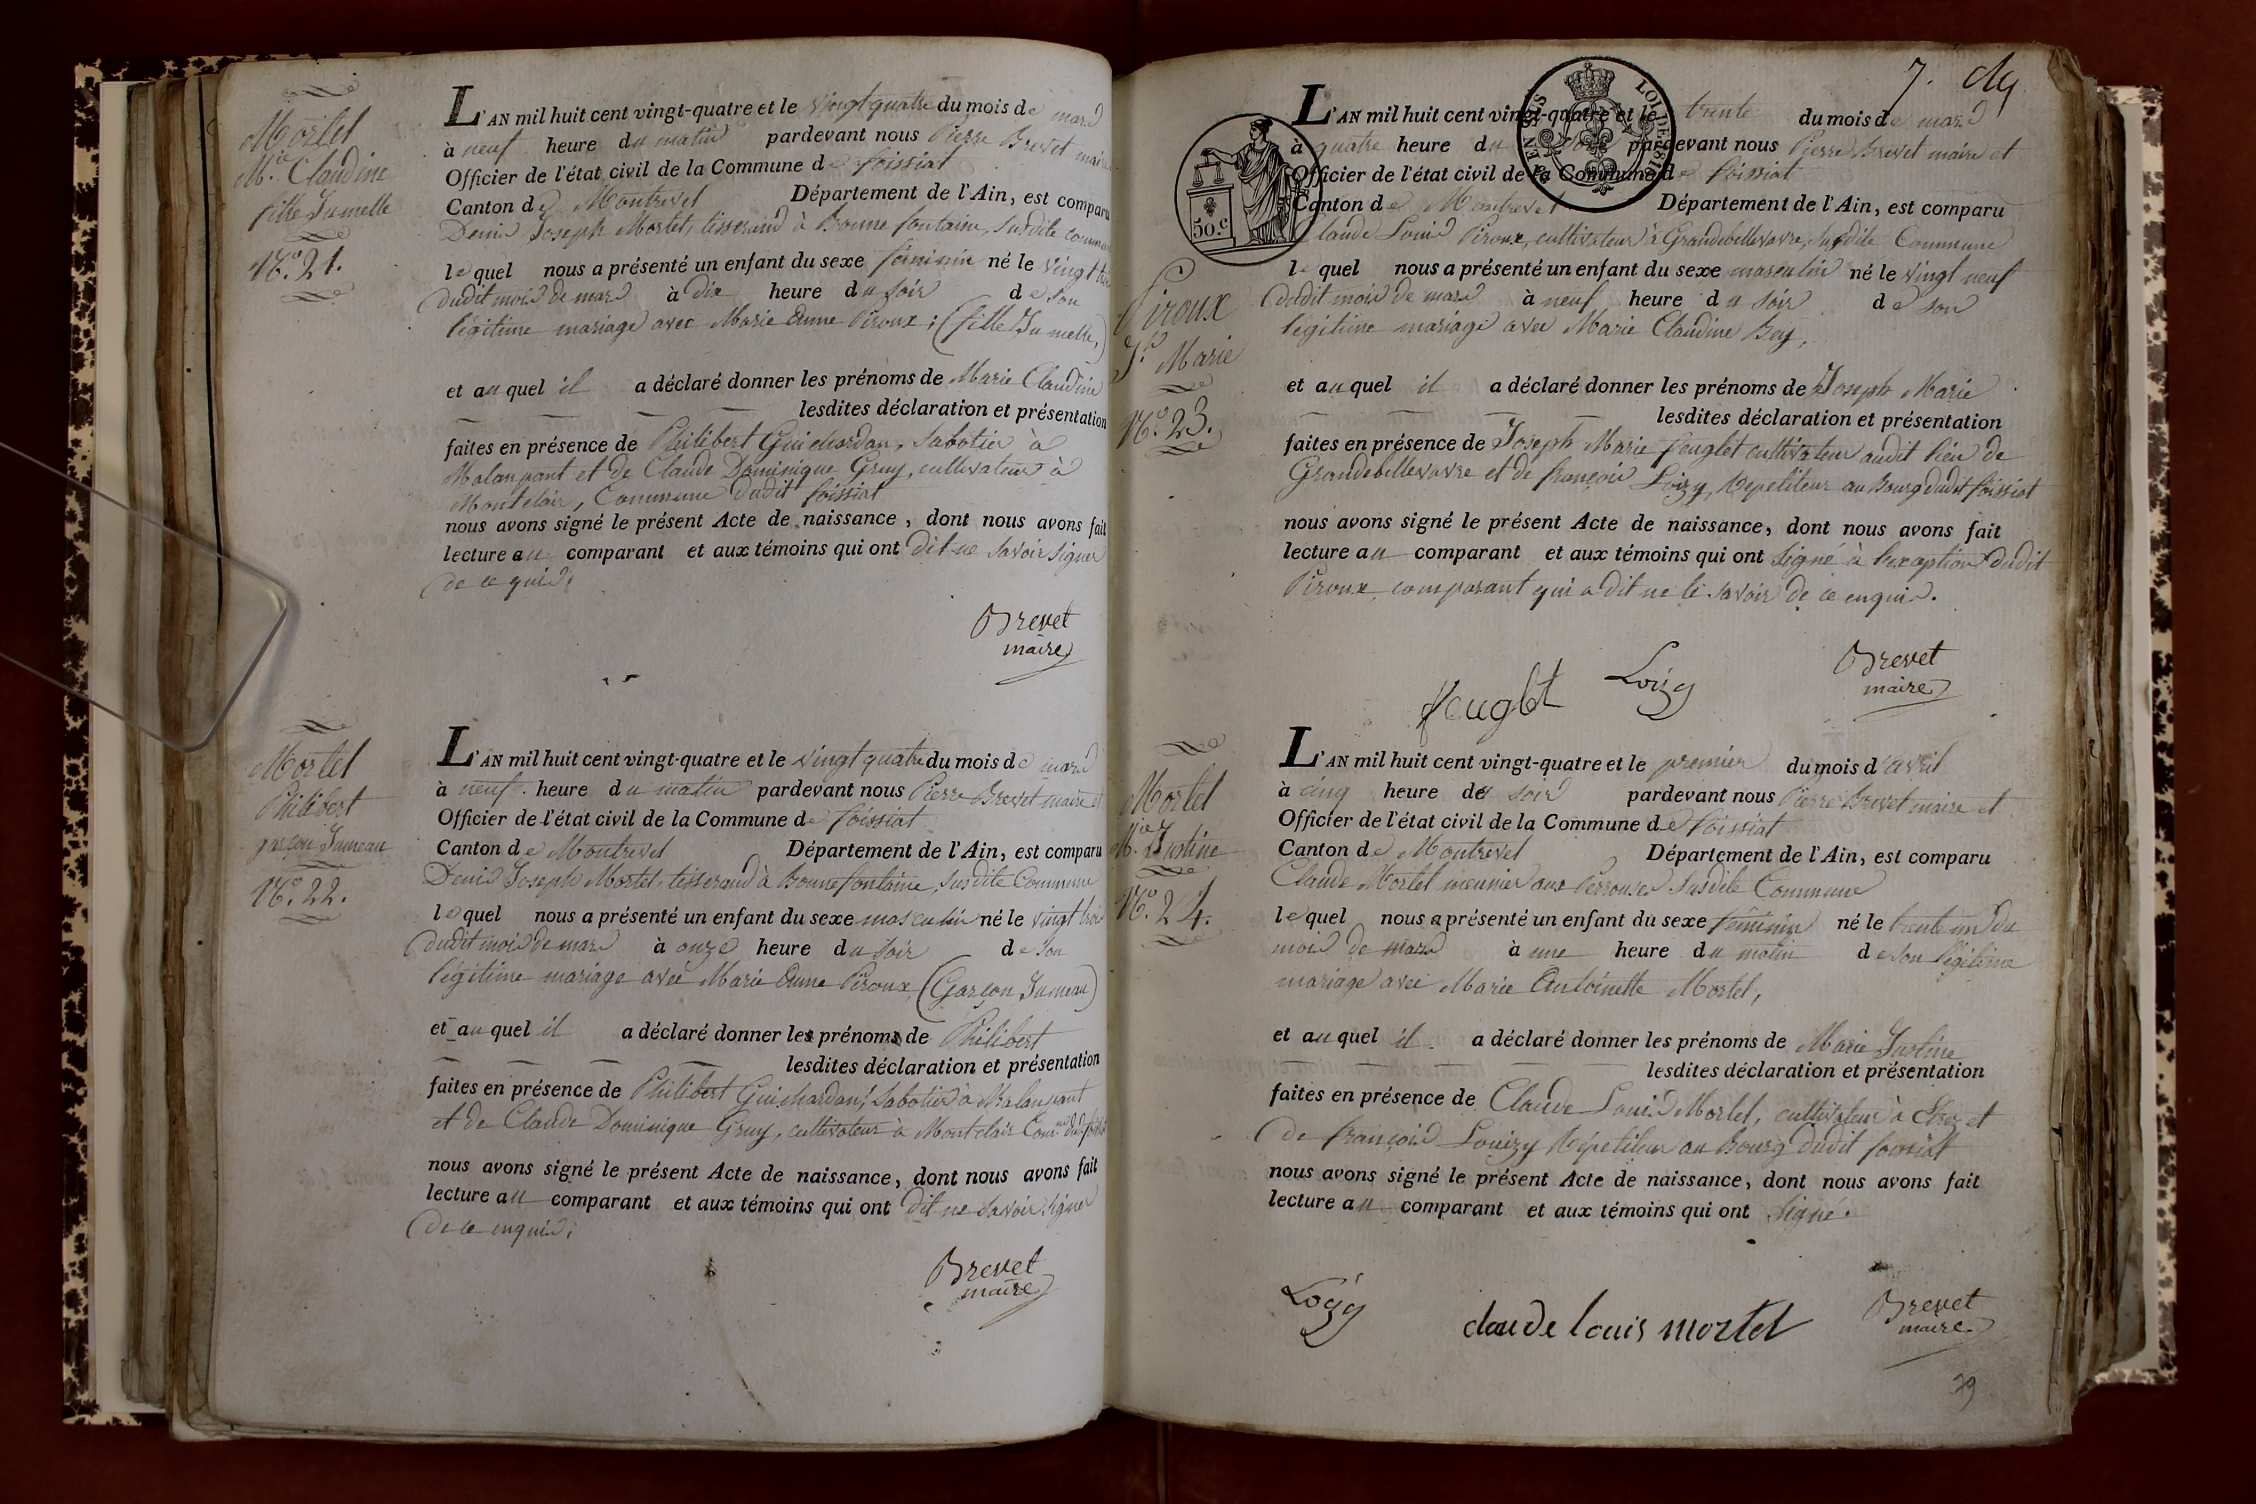 Mortel
M.ie Claudine
fille Jumelle
N.o 21.
L'AN mil huit cent vingt-quatre et le vingt quatre du mois de mars
à neuf heure du matin pardevant nous Pierre Brevet maire
Officier de l'état civil de la Commune de foissiat
Canton de Montrevel Département de l'Ain, est comparu
Denis Joseph Mortel, tisserand à Bonne fontaine, susdite commune
lequel nous a présenté un enfant du sexe féminin né le vingt trois
dudit mois de mars à dix heure du soir de son
légitime mariage avec Marie Anne Piroux ; (fille Jumelle,)
et auquel il a déclaré donner les prénoms de Marie Claudine
lesdites déclaration et présentation
faites en présence de Philibert Guichardan, Sabotier à
Malanpant et de Claude Dominique Gruy, cultivateur à
Montclair, Commune dudit foissiat
nous avons signé le présent Acte de naissance, dont nous avons fait
lecture au comparant et aux témoins qui ont dit ne savoir signer
de ce quis;
Brevet
maire
Mortel
Philibert
garçon Jumeau
N.o 22.
L'AN mil huit cent vingt-quatre et le vingt quatre du mois de mars
à neuf heure du matin pardevant nous Pierre Brevet maire et
Officier de l'état civil de la Commune de foissiat
Canton de Montrevel Département de l'Ain, est comparu
Denis Joseph Mortel, tisserand à Bonnefontaine, susdite Commune
lequel nous a présenté un enfant du sexe masculin né le vingt trois
dudit mois de mars à onze heure du soir de son
légitime mariage avec Marie Anne Piroux, (Garçon Jumeau)
et auquel il a déclaré donner les prénoms de Philibert
lesdites déclaration et présentation
faites en présence de Philibert Guichardan, Sabotier à Malanpant
et de Claude Dominique Gruy, cultivateur à Montclair Com.ne dudit foissiat
nous avons signé le présent Acte de naissance, dont nous avons fait
lecture au comparant et aux témoins qui ont dit ne savoir signer
de ce enquis;
Brevet
maire
7.
50.c
LOI DE 1816
Piroux
J.h Marie
N.o 23.
L'AN mil huit cent vingt-quatre et le trente du mois de mars
à quatre heure du soir pardevant nous Pierre Brevet maire et
Officier de l'état civil de la Commune de foissiat
Canton de Montrevel Département de l'Ain, est comparu
Claude Louis Piroux, cultivateur à Grandebellevavre, susdite Commune
lequel nous a présenté un enfant du sexe masculin né le vingt neuf
dudit mois de mars à neuf heure du soir de son
légitime mariage avec Marie Claudine Bey,
et auquel il a déclaré donner les prénoms de Joseph Marie
lesdites déclaration et présentation
faites en présence de Joseph Marie feuglet cultivateur audit lieu de
Grandebellevavre et de françois Loizy, Répétiteur au Bourg dudit foissiat
nous avons signé le présent Acte de naissance, dont nous avons fait
lecture au comparant et aux témoins qui ont signé à l'exception dudit
Piroux, comparant qui a dit ne le savoir de ce enquis.
feuglet Loizy Brevet
maire
Mortel
M.ie Justine
N.o 24.
L'AN mil huit cent vingt-quatre et le premier du mois d'avril
à cinq heure du soir pardevant nous Pierre Brevet maire et
Officier de l'état civil de la Commune de foissiat
Canton de Montrevel Département de l'Ain, est comparu
Claude Mortel meunier aux Perrouses susdite Commune
lequel nous a présenté un enfant du sexe féminin né le trente un du
mois de mars à une heure du matin de son légitime
mariage avec Marie Antoinette Mortel,
et auquel il a déclaré donner les prénoms de Marie Justine
lesdites déclaration et présentation
faites en présence de Claude Louis Mortel, cultivateur à et
de françois Louizy Répétiteur au Bourg dudit foissiat
nous avons signé le présent Acte de naissance, dont nous avons fait
lecture au comparant et aux témoins qui ont signé.
Loizy claude louis mortel Brevet
maire
29